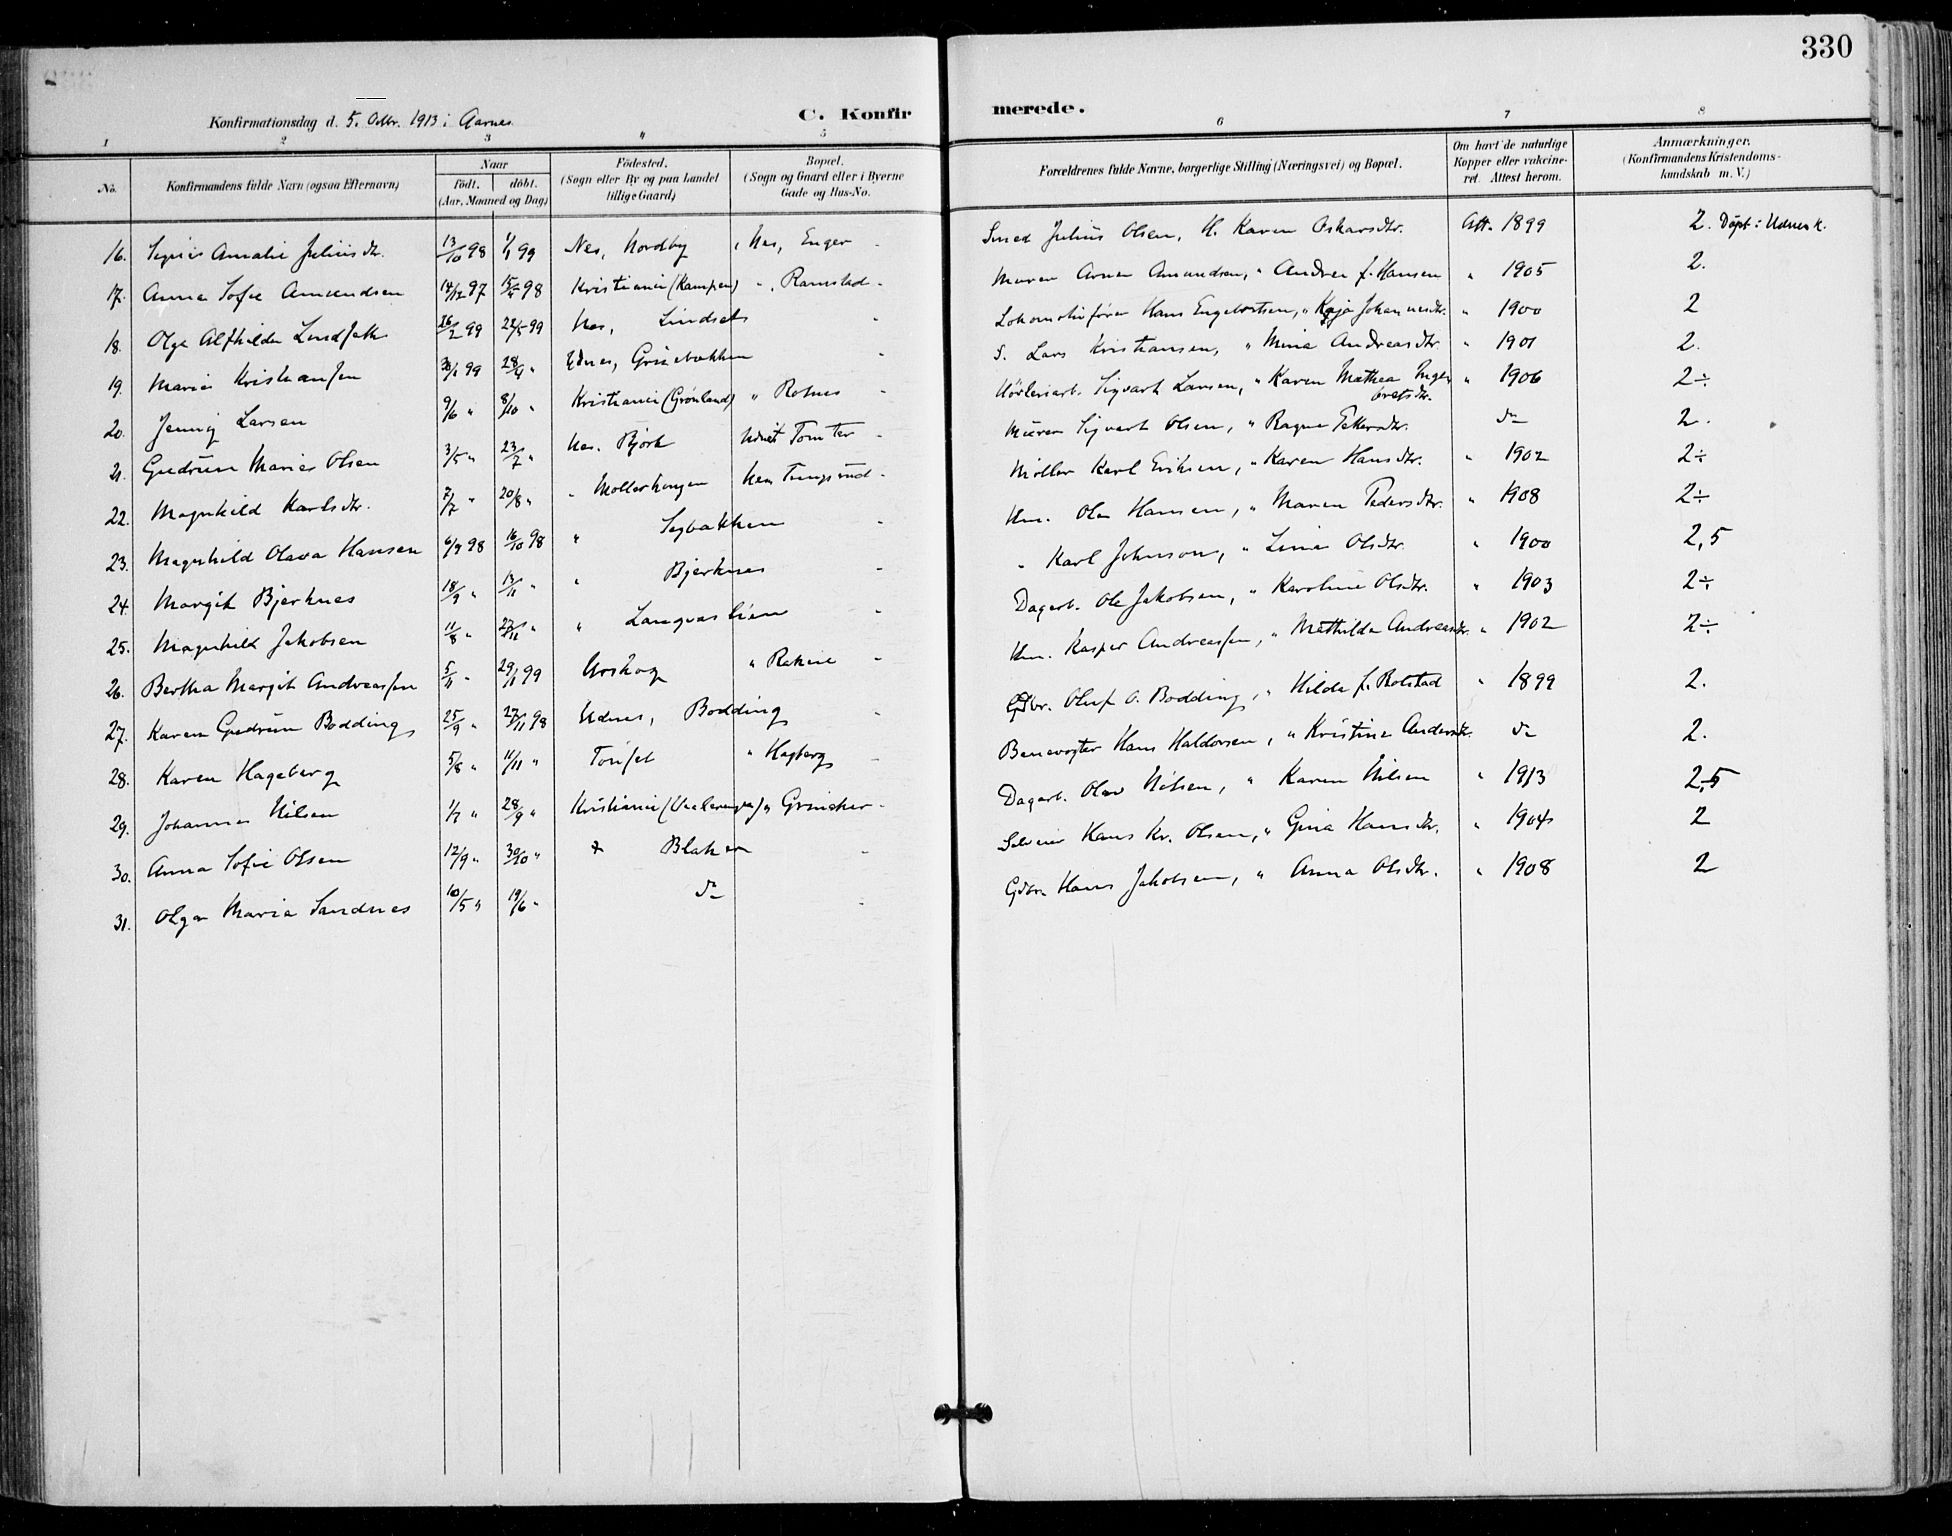 330
Konfirmationsdag d. 5. Octbr. 1913 i Aarnes. C. Konfirmerede.
1 2 3 " 5 6 7 8
No. Konfirmandens fulde Navn (ogsaa Efternavn) Naar födt. döbt. (Aar, Maaned og Dag) Födested. (Sogn eller By og paa Landet tillige Gaard) Bopæl. (Sogn og Gaard eller i Byerne Gade og Hus-No. Forældrenes fulde Navne, borgerlige Stilling (Næringsvei) og Bopæl. Om havt de naturlige Kopper eller vakcineret. Attest herom. Anmærkninger. (Konfirmandens Kristendomskundskab m. V.)
16. Signe Amalie Juliusdtr. 13/10 98 1/1 99 Nes, Nordby Nes, Enger Smed Julius Olsen, H. Karen Oskarsdtr. Att. 1899 2. Döpt i Udnes k.
17. Anna Sofie Amundsen 14/12 97 15/4 98 Kristiania (Kampen) ", Ramstad Murer Arne Amundsen, " Andrea f. Hansen " 1905 2.
18. Olga Alfhilda Lindseth 26/2 99 22/5 99 Nes, Lindset Lokomotivfører Hans Engebretsen, " Kaja Johannesdtr. " 1900 2
19. Marie Kristiansen 30/1 99 28/4 " Udnes, Grinebakken S. Lars Kristiansen, " Mina Andreasdtr. " 1901 2.
20. Jenny Larsen 9/6 " 8/10 " Kristiania (Grönland) " Rotnes Hövleriarb. Sigvart Larsen, " Karen Mathea Ingebretsdtr. " 1906 2÷
21. Gudrun Marie Olsen 3/5 " 23/7 " Nes. Björk Udnes Tomter Murer Sigvart Olsen, " Ragna Petersdtr. do 2.
22. Magnhild Karlsdtr. 7/7 " 20/8 " " Möllerhaugen Nes Tungsrud Möller Karl Eriksen, " Karen Hansdtr. " 1902 2÷
23. Magnhild Olava Hansen 6/9 98 16/10 98 " Segbakken Hm. Ole Hansen, " Maren Pedersdtr. " 1908 2÷
24. Margit Bjerknes 18/9 " 13/11 " " Bjerknes " Karl Johnson, " Lina Olsdtr. " 1900 2,5
25. Magnhild Jakobsen 11/8 " 27/11 " " Langvaslien Dagarb. Ole Jakobsen, " Karoline Olsdtr. " 1903 2÷
26. Bertha Margit Andreassen 5/11 " 29/1 99 Urskog " Rakeie Hm. Kasper Andreassen, " Mathilde Andreasdtr. " 1902 2÷
27. Karen Gudrun Bodding 25/9 " 27/11 98 Udnes, Bodding Gdbr. Oluf O. Bodding, " Hilda f. Rolstad " 1899 2.
28. Karen Hageberg 5/8 " 11/11 " Tönset " Hagberg Banevogter Hans Haldorsen, " Kristine Andersdtr. do 2.
29. Johanne Nilsen 1/7 " 28/9 " Kristiania (Vaalerengen) " Grinaker Dagarb. Olav Nilsen, " Karen Nilsen " 1913 2,5
30. Anna Sofie Olsen 12/9 " 30/10 " Blaker Selveier Hans Kr. Olsen, " Gina Hansdtr. " 1904 2
31. Olga Maria Sandnes 10/5 " 19/6 " do Gdbr. Hans Jakobsen, " Anna Olsdtr. " 1908 2